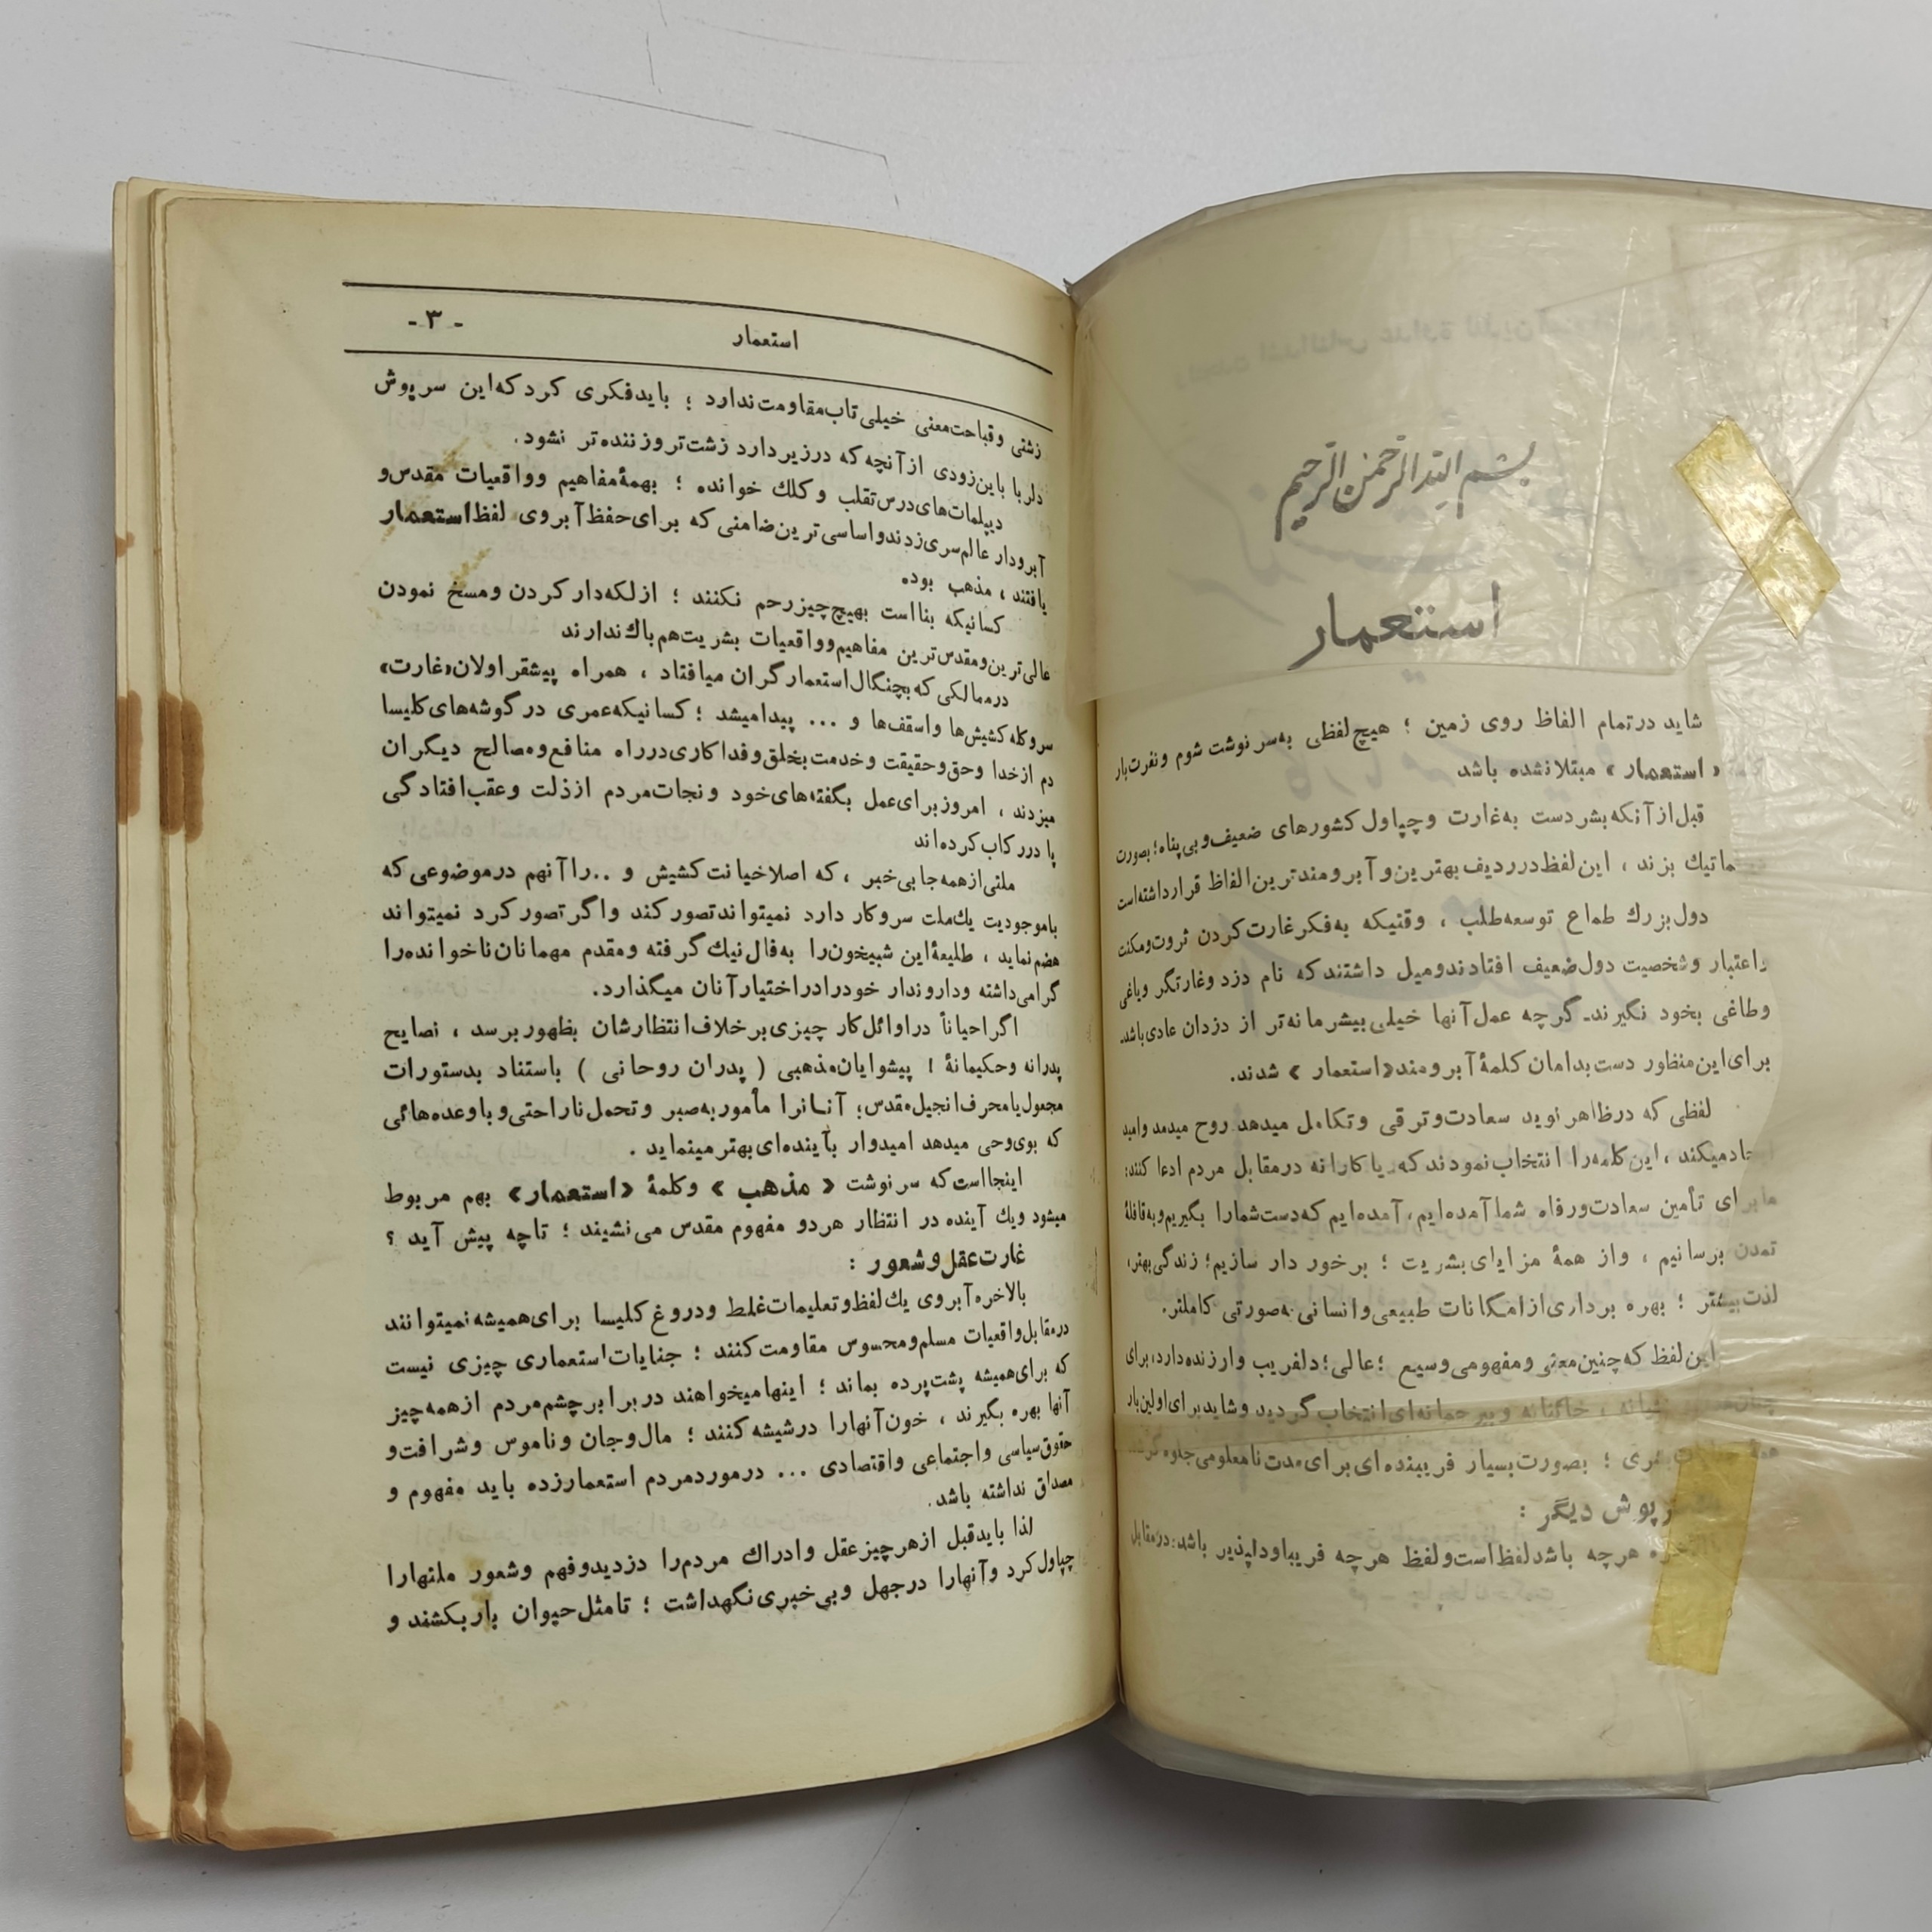 بسم الله الرحمن الرحیم
استعمار
شاید درتمام الفاظ روی زمین ؛ هیچ لفظی به‌سرنوشت شوم ونفرت‌بار
« استعمار » مبتلانشده باشد
قبل‌ازآنکه بشردست به‌غارت وچپاول کشورهای ضعیف‌وبی‌پناه؛ بصورت
بزند ، این لفظ درردیف بهترین‌وآبرومندترین الفاظ قرارداشته‌است
دول‌بزرك طماع توسعه‌طلب ، وقتیکه به‌فکرغارت‌کردن ثروت‌ومکنت
واعتبار وشخصیت دول‌ضعیف افتادندومیل داشتندکه نام دزد وغارتگر ویاغی
وطاغی بخود نگیرند۔گرچه عمل‌آنها خیلی‌بیشرمانه‌تر از دزدان عادی‌باشد
برای‌این‌منظور دست‌بدامان کلمۀ‌آبرومند«استعمار » شدند.
لفظی که درظاهر نوید سعادت‌وترقی وتکامل میدهد روح میدمد وامید
ایجادمیکند ، این‌کلمه‌را انتخاب‌نمودندکه‌ریاکارانه درمقابل مردم ادعا کنند:
ما برای تأمین سعادت‌ورفاه شماآمده‌ایم، آمده‌ایم که‌دست‌شمارا بگیریم‌وبه‌قافلۀ
تمدن برسانیم ، واز همۀ مزایای‌بشریت ؛ برخور دار سازیم؛ زندگی‌بهتر،
لذت‌بیشتر ؛ بهره برداری‌ازامکانات طبیعی‌وانسانی به‌صورتی کاملتر.
این‌لفظ که‌چنین‌معنی ومفهومی‌وسیع ؛عالی؛دلفریب وارزنده‌دارد،برای
خائنانه وبیرحمانه‌ای‌انتخاب‌گردید وشایدبرای‌اولین‌بار
؛ بصورت‌بسیار فریبنده‌ای برای‌مدت‌نامعلومی‌جلوه
سرپوش دیگر :
هرچه باشدلفظ‌است‌ولفظ هرچه فریباودلپذیر باشد؛درمقابل
استعمار
- ۳ -
زشتی وقباحت‌معنی خیلی‌تاب‌مقاومت‌ندارد ؛ بایدفکری کردکه‌این سرپوش
دلربا باین‌زودی ازآنچه‌که درزیردارد زشت‌تروزننده‌تر نشود.
دیپلمات‌های‌درس‌تقلب وکلك خوانده ؛ بهمۀمفاهیم وواقعیات مقدس‌و
آبرودار عالم‌سری‌زدندواساسی‌ترین‌ضامنی‌که برای‌حفظ‌آبروی لفظ‌استعمار
یافتند ، مذهب بود.
کسانیکه بنااست بهیچ‌چیزرحم نکنند ؛ ازلکه‌دارکردن ومسخ نمودن
عالی‌ترین‌ومقدس‌ترین مفاهیم‌وواقعیات بشریت‌هم‌باك‌ندارند
درممالکی‌که‌بچنگال‌استعمارگران میافتاد ، همراه پیشقراولان«غارت»
سروکله‌کشیش‌ها واسقف‌ها و ... پیدامیشد ؛ کسانیکه‌عمری درگوشه‌های‌کلیسا
دم ازخدا وحق‌وحقیقت وخدمت‌بخلق‌وفداکاری‌درراه منافع‌ومصالح دیگران
میزدند ، امروزبرای‌عمل بگفته‌های‌خود ونجات‌مردم ازذلت وعقب‌افتادگی
پا دررکاب‌کرده‌اند
ملتی‌ازهمه‌جابی‌خبر ، که اصلاخیانت‌کشیش و ..راآنهم درموضوعی‌که
باموجودیت یك‌ملت سروکار دارد نمیتواندتصورکند واگرتصورکرد نمیتواند
هضم‌نماید ، طلیعۀاین شبیخون‌را به‌فال‌نیك‌گرفته ومقدم مهمانان‌ناخوانده‌را
گرامی‌داشته ودارو‌ندار خودرادراختیارآنان میگذارد.
اگراحیاناً دراوائل‌کار چیزی‌برخلاف‌انتظارشان بظهوربرسد ، نصایح
پدرانه وحکیمانۀ ! پیشوایان‌مذهبی ( پدران روحانی ) باستناد بدستورات
مجعول‌یامحرف‌انجیل‌مقدس؛ آنانرا مأموربه‌صبر وتحمل‌ناراحتی‌وباوعده‌هائی
که بوی‌وحی میدهد امیدوار بآینده‌ای‌بهترمینماید .
اینجااست‌که سرنوشت « مذهب » وکلمۀ «استعمار» بهم مربوط
میشود ویك آینده در انتظار هردو مفهوم مقدس می‌نشیند ؛ تاچه پیش آید ؟
غارت‌عقل‌وشعور :
بالاخره‌آبروی یك‌لفظ‌وتعلیمات‌غلط ودروغ‌کلیسا برای‌همیشه‌نمیتوانند
درمقابل‌واقعیات مسلم‌ومحسوس مقاومت‌کنند ؛ جنایات‌استعماری چیزی نیست
که برای‌همیشه پشت‌پرده بماند ؛ اینهامیخواهند دربرابرچشم‌مردم ازهمه‌چیز
آنها بهره بگیرند ، خون‌آنهارا درشیشه‌کنند ؛ مال‌وجان وناموس وشرافت‌و
حقوق‌سیاسی واجتماعی واقتصادی ... درموردمردم استعمارزده باید مفهوم و
مصداق نداشته باشد.
لذا بایدقبل ازهرچیزعقل وادراك مردم‌را دزدیدوفهم وشعور ملتهارا
چپاول‌کرد وآنهارا درجهل وبی‌خبری‌نگهداشت ؛ تامثل‌حیوان باربکشند و